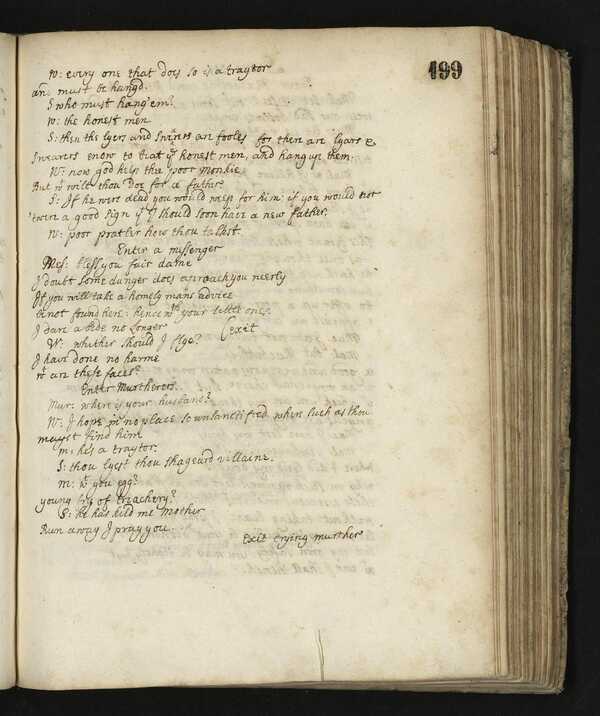 499
W: every one that does so is a traytor
and must be hangd.
S who must hang'em?
W: the honest men
S: then the lyers and swirers are fooles for there are lyars &
swearers enow to beat ye honest men, and hang up them.
W: now god help thee poor monkie
But wt wilt thou doe for a father
S: If he were dead you would weep for him: if you would not
twere a good sign yt I should soon have a new father.
W: poor pratler how thou talkst.
Enter a messenger
Mes: bless you fair dame
I doubt some danger does aproach you neerly
If you will take a homely mans advice
be not found here: hence wth your little ones
I dare abide no longer (exit
W: whither should I flye?
I have done no harme
wt are these faces?
Enter Murtherers.
Mur: where is your husband?
W: I hope in no place so unsanctifred where such as thou
mayst find him
m: he's a traytor.
S: thou lyest thou shageard villaine.
m: wt you egg?
young fry of treachery?
S: he has kild me Mother
Run away I pray you.
Exit crying murther